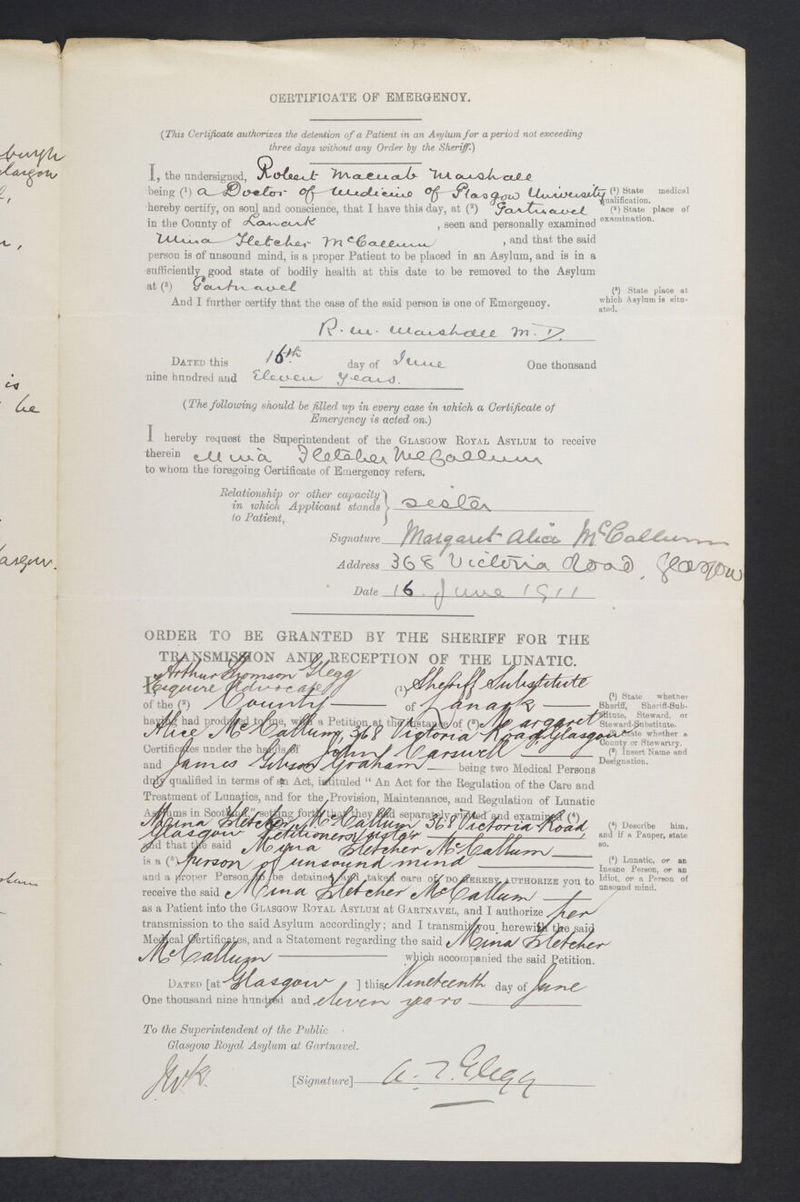 burgh
Glasgow
is
he
CERTIFICATE OF EMERGENCY.
(This Certificate authorizes the detention of a Patient in an Asylum for a period not exceeding
three days without any Order by the Sheriff.)
I, the undersigned, Robert Macnab Marshall
being (¹) a Doctor of Medicine of Glasgow University
hereby certify, on soul and conscience, that I have this day, at (²) Gartnavel
in the County of Lanark , seen and personally examined
Mina Fletcher McCallum , and that the said
person is of unsound mind, is a proper Patient to be placed in an Asylum, and is in a
sufficiently good state of bodily health at this date to be removed to the Asylum
at (³) Gartnavel
And I further certify that the case of the said person is one of Emergency.
(¹) State medical
qualification.
(²) State place of
examination.
(³) State place at
which Asylum is situ-
ated.
R. M. Marshall M.D.
DATED this 16th day of June One thousand
nine hundred and Eleven years.
(The following should be filled up in every case in which a Certificate of
Emergency is acted on.)
I hereby request the Superintendent of the GLASGOW ROYAL ASYLUM to receive
therein Mina Fletcher McCallum
to whom the foregoing Certificate of Emergency refers.
Relationship or other capacity
in which Applicant stands
to Patient,
} sister
Signature Margaret Alice McCallum
Address 368 Victoria Road, Glasgow
Date 16 June 1911
ORDER TO BE GRANTED BY THE SHERIFF FOR THE
TRANSMISSION AND RECEPTION OF THE LUNATIC.
I Arthur Thomson Glegg
Esquire Advocate (¹) Sheriff Substitute
of the (²) County of Lanark
having had produced to me, with a Petition at the instance of (³) Margaret
Alice McCallum, 368 Victoria Road, Glasgow
Certificates under the hands of John Carswell
and James Gibson Graham being two Medical Persons
duly qualified in terms of an Act, intituled "An Act for the Regulation of the Care and
Treatment of Lunatics, and for the Provision, Maintenance, and Regulation of Lunatic
Asylums in Scotland," setting forth that they had separately visited and examined (⁴)
Mina Fletcher McCallum, 368 Victoria Road,
Glasgow Petitioners sister
and that the said Mina Fletcher McCallum
is a (⁵) person of unsound mind
and a proper Person to be detained and taken care of, DO HEREBY AUTHORIZE you to
receive the said Mina Fletcher McCallum
as a Patient into the GLASGOW ROYAL ASYLUM at GARTNAVEL, and I authorize her
transmission to the said Asylum accordingly; and I transmit you herewith the said
Medical Certificates, and a Statement regarding the said Mina Fletcher
McCallum which accompanied the said Petition.
(¹) State whether
Sheriff, Sheriff-Sub-
stitute, Steward, or
Steward-Substitute.
(²) State whether a
County or Stewartry.
(³) Insert Name and
Designation.
(⁴) Describe him,
and if a Pauper, state
so.
(⁵) Lunatic, or an
Insane Person, or an
Idiot, or a Person of
unsound mind.
DATED [at Glasgow ] this Nineteenth day of June
One thousand nine hundred and eleven years
To the Superintendent of the Public
Glasgow Royal Asylum at Gartnavel.
[Signature] A. T. Glegg